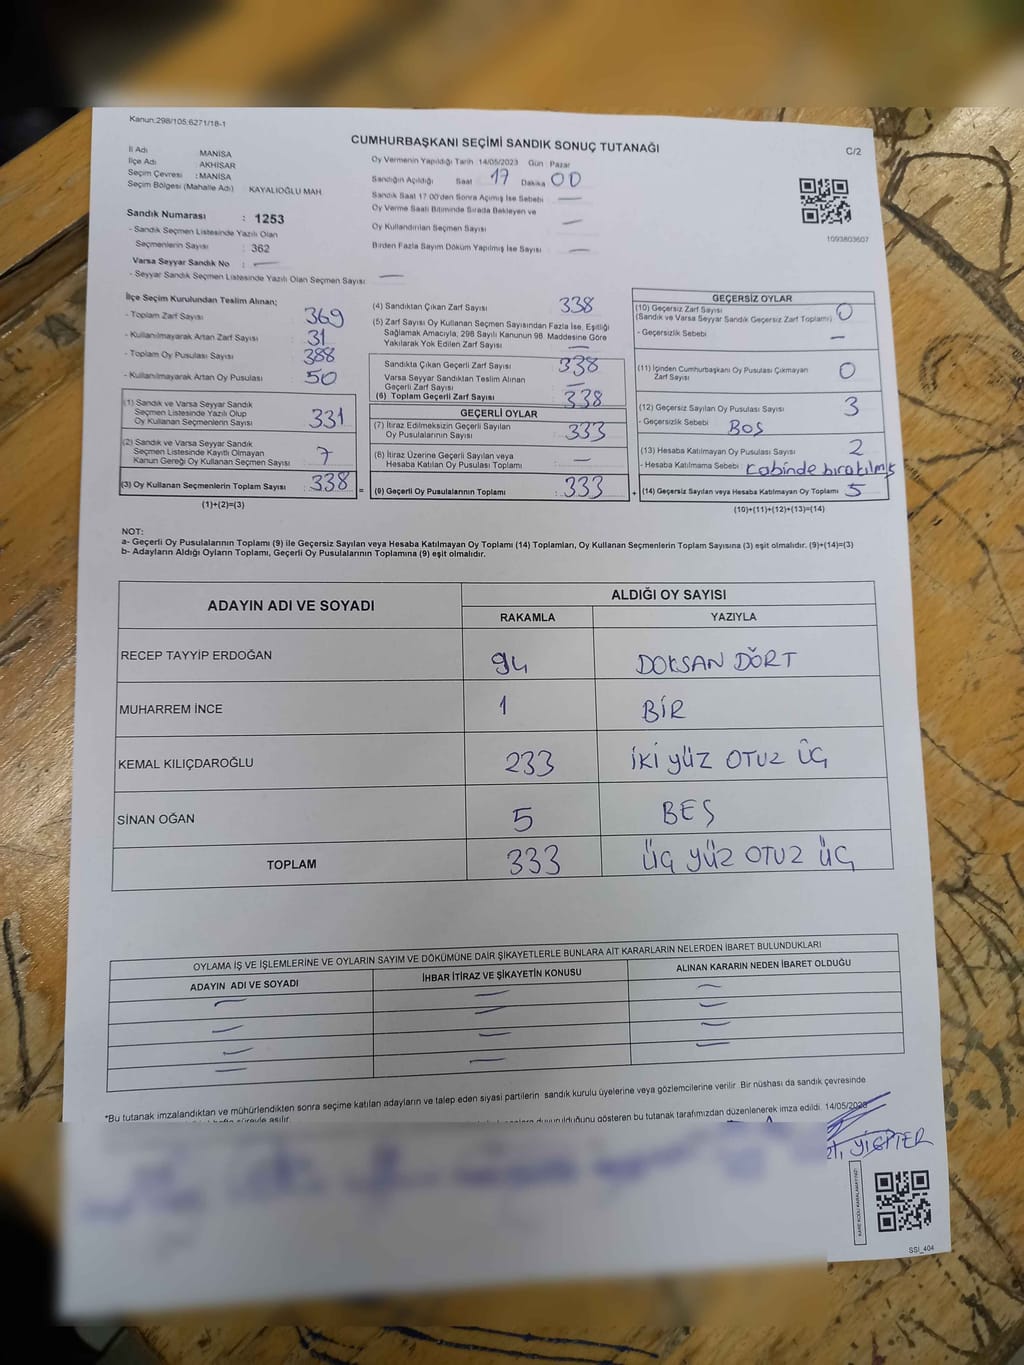 Kanun:298/105,6271/18-1
CUMHURBAŞKANI SEÇİMİ SANDIK SONUÇ TUTANAĞI
C/2
İl Adı MANİSA
İlçe Adı AKHİSAR
Seçim Çevresi : MANİSA
Seçim Bölgesi (Mahalle Adı) KAYALIOĞLU MAH.
Oy Vermenin Yapıldığı Tarih 14/05/2023 Gün Pazar
Sandığın Açıldığı Saat 17 Dakika 00
Sandık Saat 17:00'den Sonra Açımış İse Sebebi —
Oy Verme Saati Bitiminde Sırada Bekleyen ve
Oy Kullandırılan Seçmen Sayısı —
Birden Fazla Sayım Döküm Yapılmış İse Sayısı —
1093803607
Sandık Numarası : 1253
- Sandık Seçmen Listesinde Yazılı Olan
Seçmenlerin Sayısı : 362
Varsa Seyyar Sandık No : —
- Seyyar Sandık Seçmen Listesinde Yazılı Olan Seçmen Sayısı: —
İlçe Seçim Kurulundan Teslim Alınan;
- Toplam Zarf Sayısı : 369
- Kullanılmayarak Artan Zarf Sayısı : 31
- Toplam Oy Pusulası Sayısı : 388
- Kullanılmayarak Artan Oy Pusulası : 50
(1) Sandık ve Varsa Seyyar Sandık
Seçmen Listesinde Yazılı Olup
Oy Kullanan Seçmenlerin Sayısı : 331
(2) Sandık ve Varsa Seyyar Sandık
Seçmen Listesinde Kayıtlı Olmayan
Kanun Gereği Oy Kullanan Seçmen Sayısı : 7
(3) Oy Kullanan Seçmenlerin Toplam Sayısı : 338
(1)+(2)=(3)
(4) Sandıktan Çıkan Zarf Sayısı 338
(5) Zarf Sayısı Oy Kullanan Seçmen Sayısından Fazla İse, Eşitliği
Sağlamak Amacıyla, 298 Sayılı Kanunun 98. Maddesine Göre
Yakılarak Yok Edilen Zarf Sayısı —
Sandıkta Çıkan Geçerli Zarf Sayısı : 338
Varsa Seyyar Sandıktan Teslim Alınan
Geçerli Zarf Sayısı : —
(6) Toplam Geçerli Zarf Sayısı : 338
GEÇERLİ OYLAR
(7) İtiraz Edilmeksizin Geçerli Sayılan
Oy Pusulalarının Sayısı : 333
(8) İtiraz Üzerine Geçerli Sayılan veya
Hesaba Katılan Oy Pusulası Toplamı : —
= (9) Geçerli Oy Pusulalarının Toplamı : 333
GEÇERSİZ OYLAR
(10) Geçersiz Zarf Sayısı
(Sandık ve Varsa Seyyar Sandık Geçersiz Zarf Toplamı) : 0
- Geçersizlik Sebebi —
(11) İçinden Cumhurbaşkanı Oy Pusulası Çıkmayan
Zarf Sayısı 0
(12) Geçersiz Sayılan Oy Pusulası Sayısı : 3
- Geçersizlik Sebebi : BOŞ
(13) Hesaba Katılmayan Oy Pusulası Sayısı : 2
- Hesaba Katılmama Sebebi : kabinde bırakılmış
+ (14) Geçersiz Sayılan veya Hesaba Katılmayan Oy Toplamı : 5
(10)+(11)+(12)+(13)=(14)
NOT:
a- Geçerli Oy Pusulalarının Toplamı (9) ile Geçersiz Sayılan veya Hesaba Katılmayan Oy Toplamı (14) Toplamları, Oy Kullanan Seçmenlerin Toplam Sayısına (3) eşit olmalıdır. (9)+(14)=(3)
b- Adayların Aldığı Oyların Toplamı, Geçerli Oy Pusulalarının Toplamına (9) eşit olmalıdır.
ADAYIN ADI VE SOYADI ALDIĞI OY SAYISI
RAKAMLA YAZIYLA
RECEP TAYYİP ERDOĞAN 94 DOKSAN DÖRT
MUHARREM İNCE 1 BİR
KEMAL KILIÇDAROĞLU 233 İKİ YÜZ OTUZ ÜÇ
SİNAN OĞAN 5 BEŞ
TOPLAM 333 ÜÇ YÜZ OTUZ ÜÇ
OYLAMA İŞ VE İŞLEMLERİNE VE OYLARIN SAYIM VE DÖKÜMÜNE DAİR ŞİKAYETLERLE BUNLARA AİT KARARLARIN NELERDEN İBARET BULUNDUKLARI
ADAYIN ADI VE SOYADI İHBAR İTİRAZ VE ŞİKAYETİN KONUSU ALINAN KARARIN NEDEN İBARET OLDUĞU
*Bu tutanak imzalandıktan ve mühürlendikten sonra seçime katılan adayların ve talep eden siyasi partilerin sandık kurulu üyelerine veya gözlemcilerine verilir. Bir nüshası da sandık çevresinde
duyurulduğunu gösteren bu tutanak tarafımızdan düzenlenerek imza edildi. 14/05/2023
SSİ_404